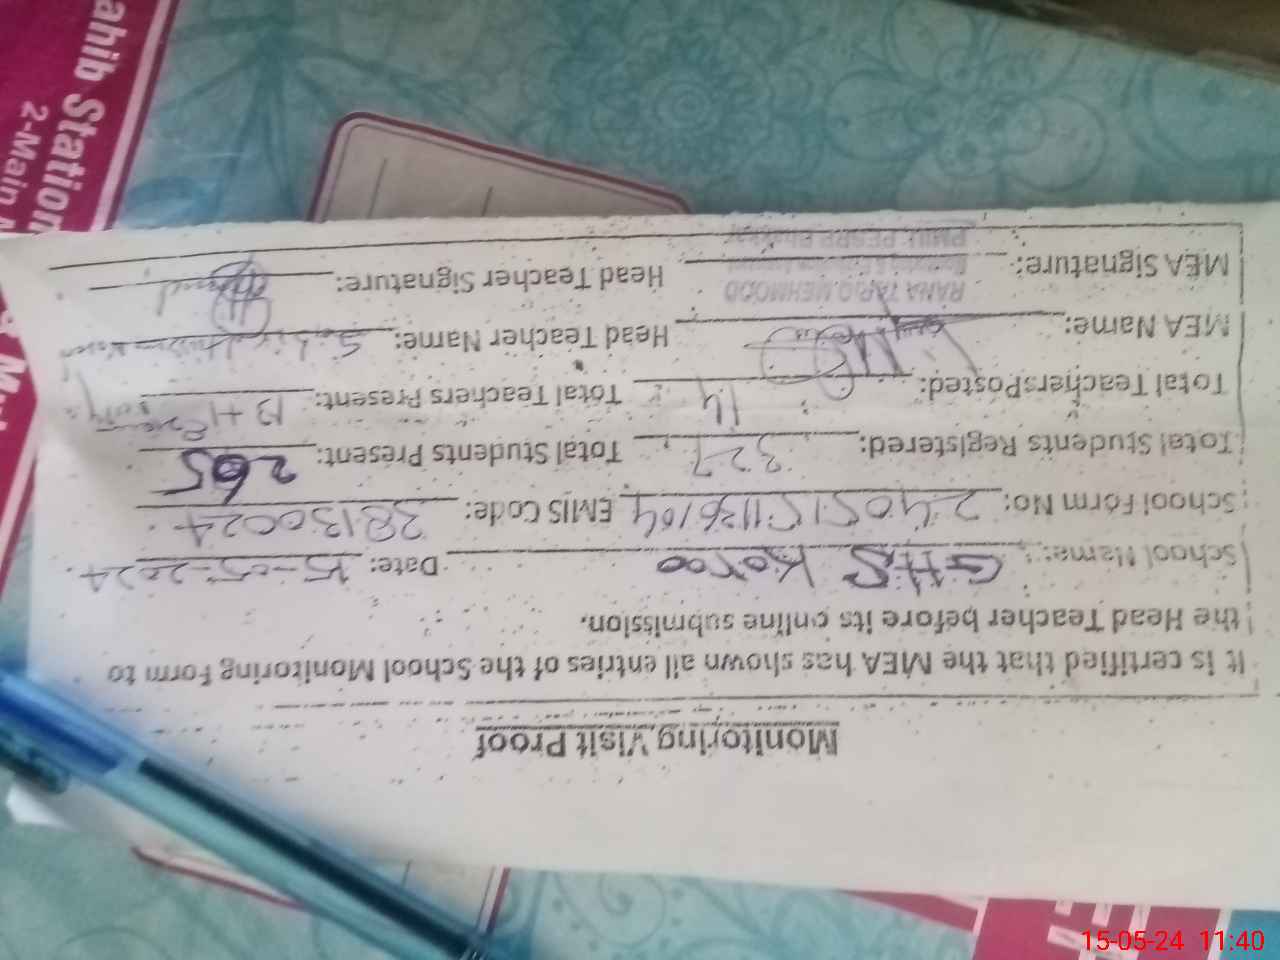 Monitoring Visit Proof
It is certified that the MEA has shown all entries of the School Monitoring Form to
the Head Teacher before its online submission.
School Name: GHS Karoo Date: 15-05-2024
School Form No: EMIS Code: 38130024
Total Students Registered: 327 Total Students Present: 265
Total Teachers Posted: 14 Total Teachers Present: 13+1
MEA Name: Head Teacher Name:
MEA Signature: Head Teacher Signature:
RANA TARIQ MEHMOOD
ahib Station
2-Main
15-05-24 11:40